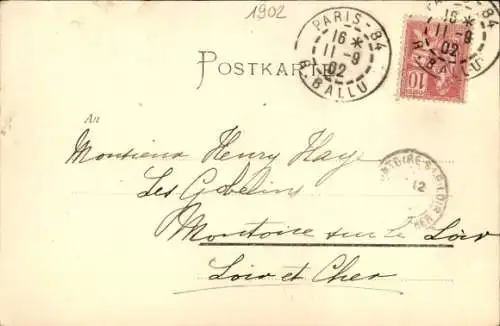 1902
PARIS-84
16*
11-9
02
R. BALLU
PARIS-84
16*
11-9
02
R. BALLU
10
POSTKARTE
An
Monsieur Henry Haye
Les Gobelins
12
Montoire sur le Loir
Loir et Cher